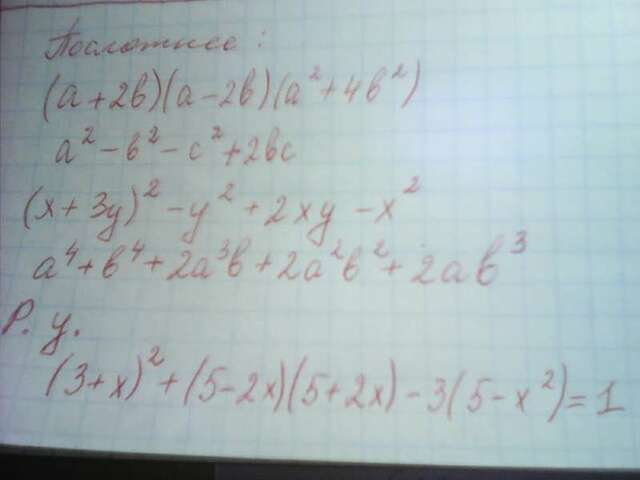 Посложнее:
(a+2b)(a-2b)(a²+4b²)
a²-b²-c²+2bc
(x+3y)²-y²+2xy-x²
a⁴+b⁴+2a³b+2a²b²+2ab³
Р. у.
(3+x)²+(5-2x)(5+2x)-3(5-x²)=1